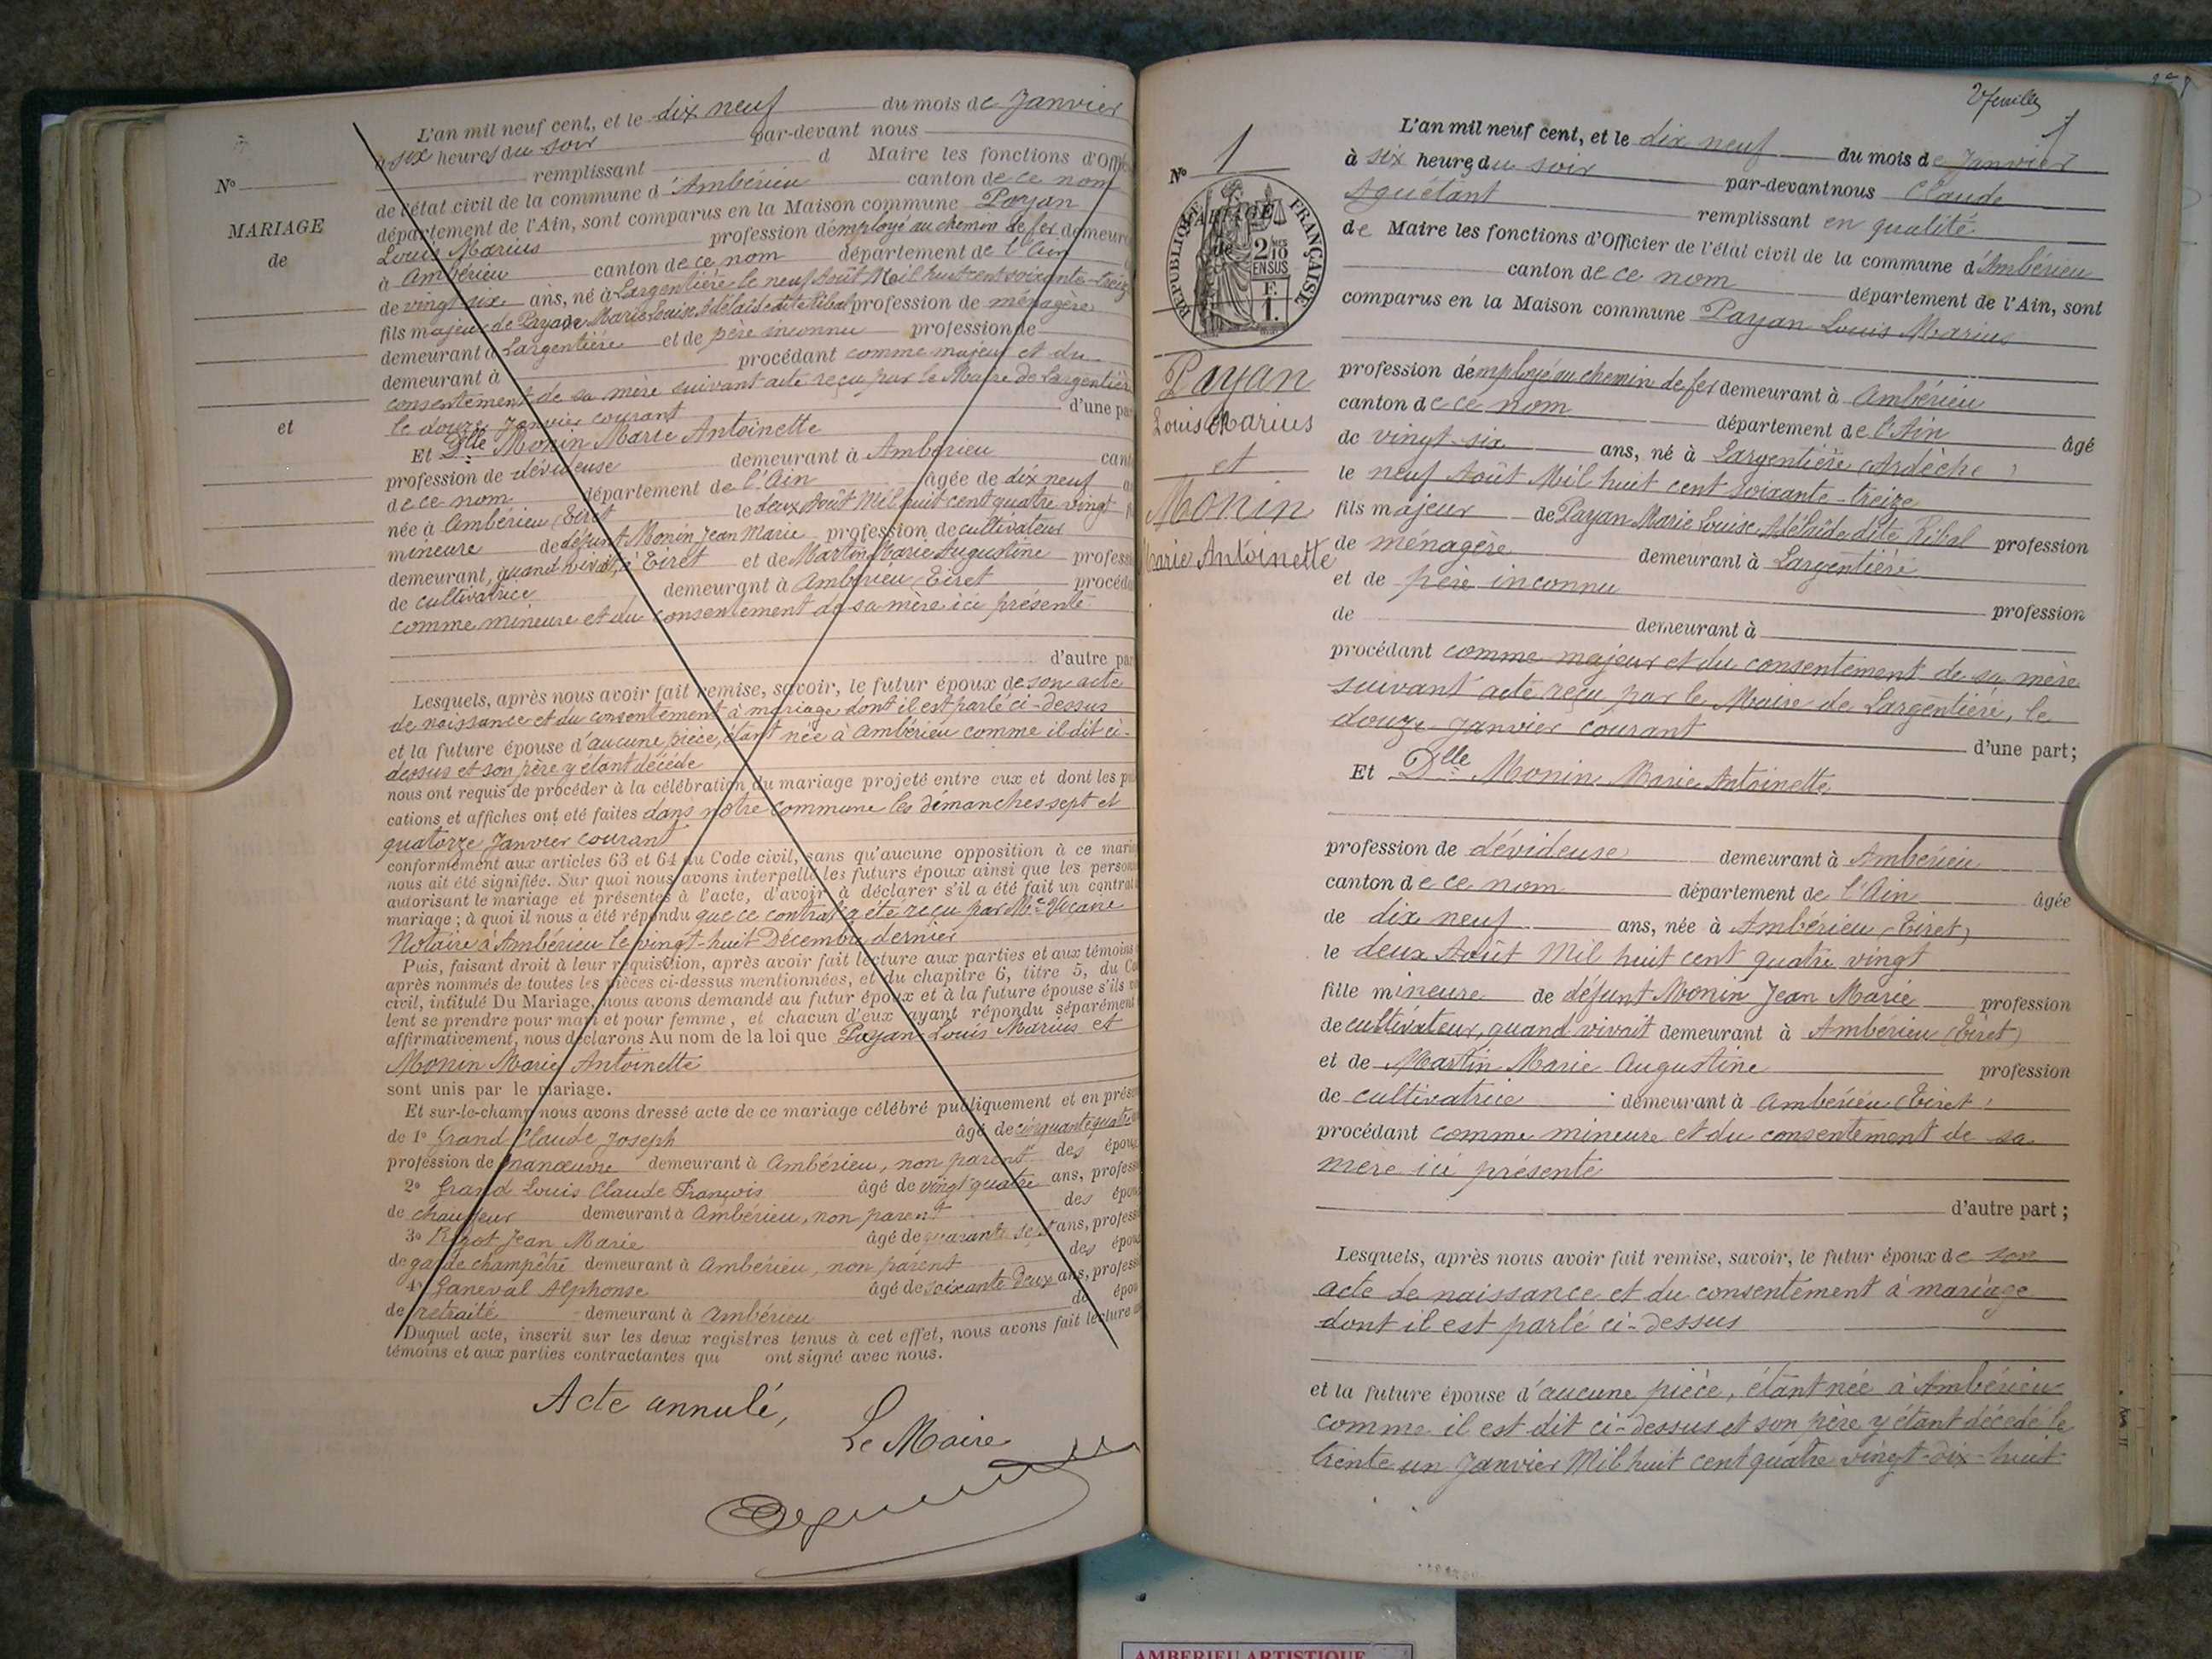 L'an mil neuf cent, et le dix neuf du mois de Janvier
à six heures du soir par-devant nous
remplissant d Maire les fonctions d'Offic
de l'état civil de la commune d'Ambérieu canton de ce nom
département de l'Ain, sont comparus en la Maison commune Payan
Louis Marius profession d'employé au chemin de fer demeur
à Ambérieu canton de ce nom département de l'Ain
de vingt six ans, né à Largentière le neuf Août Mil huit cent soixante-treize
fils majeur de Payan Marie Louise Adélaïde dite Ribal profession de ménagère
demeurant à Largentière et de père inconnu profession de
demeurant à procédant comme majeur et du
consentement de sa mère suivant acte reçu par le Maire de Largentière
le douze Janvier courant d'une pa
N°
MARIAGE
de
et
Et Dlle Monin Marie Antoinette
profession de dévideuse demeurant à Ambérieu cant
de ce nom département de l'Ain âgée de dix neuf
née à Ambérieu (Tiret le deux Août Mil huit cent quatre vingt
mineure de défunt Monin Jean Marie profession de cultivateur
demeurant, quand vivait, à Tiret et de Martin Marie Augustine profess
de cultivatrice demeurant à Ambérieu (Tiret procéda
comme mineure et du consentement de sa mère ici présente
d'autre par
Lesquels, après nous avoir fait remise, savoir, le futur époux de son acte
de naissance et du consentement à mariage dont il est parlé ci-dessus
et la future épouse d'aucune pièce, étant née à Ambérieu comme il dit ci-
dessus et son père y étant décédé
nous ont requis de procéder à la célébration du mariage projeté entre eux et dont les pu
cations et affiches ont été faites dans notre commune les dimanches sept et
quatorze Janvier courant
conformément aux articles 63 et 64 du Code civil, sans qu'aucune opposition à ce maria
nous ait été signifiée. Sur quoi nous avons interpellé les futurs époux ainsi que les person
autorisant le mariage et présentes à l'acte, d'avoir à déclarer s'il a été fait un contrat
mariage ; à quoi il nous a été répondu que ce contrat a été reçu par Me
Notaire à Ambérieu le vingt-huit Décembre dernier
Puis, faisant droit à leur réquisition, après avoir fait lecture aux parties et aux témoins
après nommés de toutes les pièces ci-dessus mentionnées, et du chapitre 6, titre 5, du Co
civil, intitulé Du Mariage, nous avons demandé au futur époux et à la future épouse s'ils v
lent se prendre pour mari et pour femme, et chacun d'eux ayant répondu séparément
affirmativement, nous déclarons Au nom de la loi que Payan Louis Marius et
Monin Marie Antoinette
sont unis par le mariage.
Et sur-le-champ nous avons dressé acte de ce mariage célébré publiquement et en prés
de 1° Grand Claude Joseph âgé de cinquante quatre
profession de manœuvre demeurant à Ambérieu, non parent des époux
2° Grand Louis Claude François âgé de vingt quatre ans, profess
de chauffeur demeurant à Ambérieu, non parent des épou
3° Jean Marie âgé de quarante sept ans, profess
de garde champêtre demeurant à Ambérieu, non parent des épou
4° Ganeval Alphonse âgé de soixante deux ans, profess
de retraité demeurant à Ambérieu de épou
Duquel acte, inscrit sur les deux registres tenus à cet effet, nous avons fait lecture
témoins et aux parties contractantes qui ont signé avec nous.
Acte annulé,
Le Maire
2 feuilles
1
N° 1
RÉPUBLIQUE FRANÇAISE
MARIAGE
de
2/10 EN SUS
F.
1.
Payan
Louis Marius
et
Monin
Marie Antoinette
L'an mil neuf cent, et le dix neuf du mois de Janvier
à six heures du soir par-devant nous Claude
Aguétant remplissant en qualité
de Maire les fonctions d'Officier de l'état civil de la commune d'Ambérieu
canton de ce nom département de l'Ain, sont
comparus en la Maison commune Payan Louis Marius
profession d'employé au chemin de fer demeurant à Ambérieu
canton de ce nom département de l'Ain âgé
de vingt-six ans, né à Largentière (Ardèche)
le neuf Août Mil huit cent soixante-treize
fils majeur de Payan Marie Louise Adélaïde dite Ribal profession
de ménagère demeurant à Largentière
et de père inconnu profession
de demeurant à
procédant comme majeur et du consentement de sa mère
suivant acte reçu par le Maire de Largentière, le
douze Janvier courant d'une part;
Et Dlle Monin Marie Antoinette
profession de dévideuse demeurant à Ambérieu
canton de ce nom département de l'Ain âgée
de dix neuf ans, née à Ambérieu (Tiret)
le deux Août Mil huit cent quatre vingt
fille mineure de défunt Monin Jean Marie profession
de cultivateur, quand vivait demeurant à Ambérieu (Tiret)
et de Martin Marie Augustine profession
de cultivatrice demeurant à Ambérieu (Tiret)
procédant comme mineure et du consentement de sa
mère ici présente
d'autre part ;
Lesquels, après nous avoir fait remise, savoir, le futur époux de son
acte de naissance et du consentement à mariage
dont il est parlé ci-dessus
et la future épouse d'aucune pièce, étant née à Ambérieu
comme il est dit ci-dessus et son père y étant décédé le
trente un Janvier Mil huit cent quatre vingt-dix-huit
AMBERIEU ARTISTIQUE